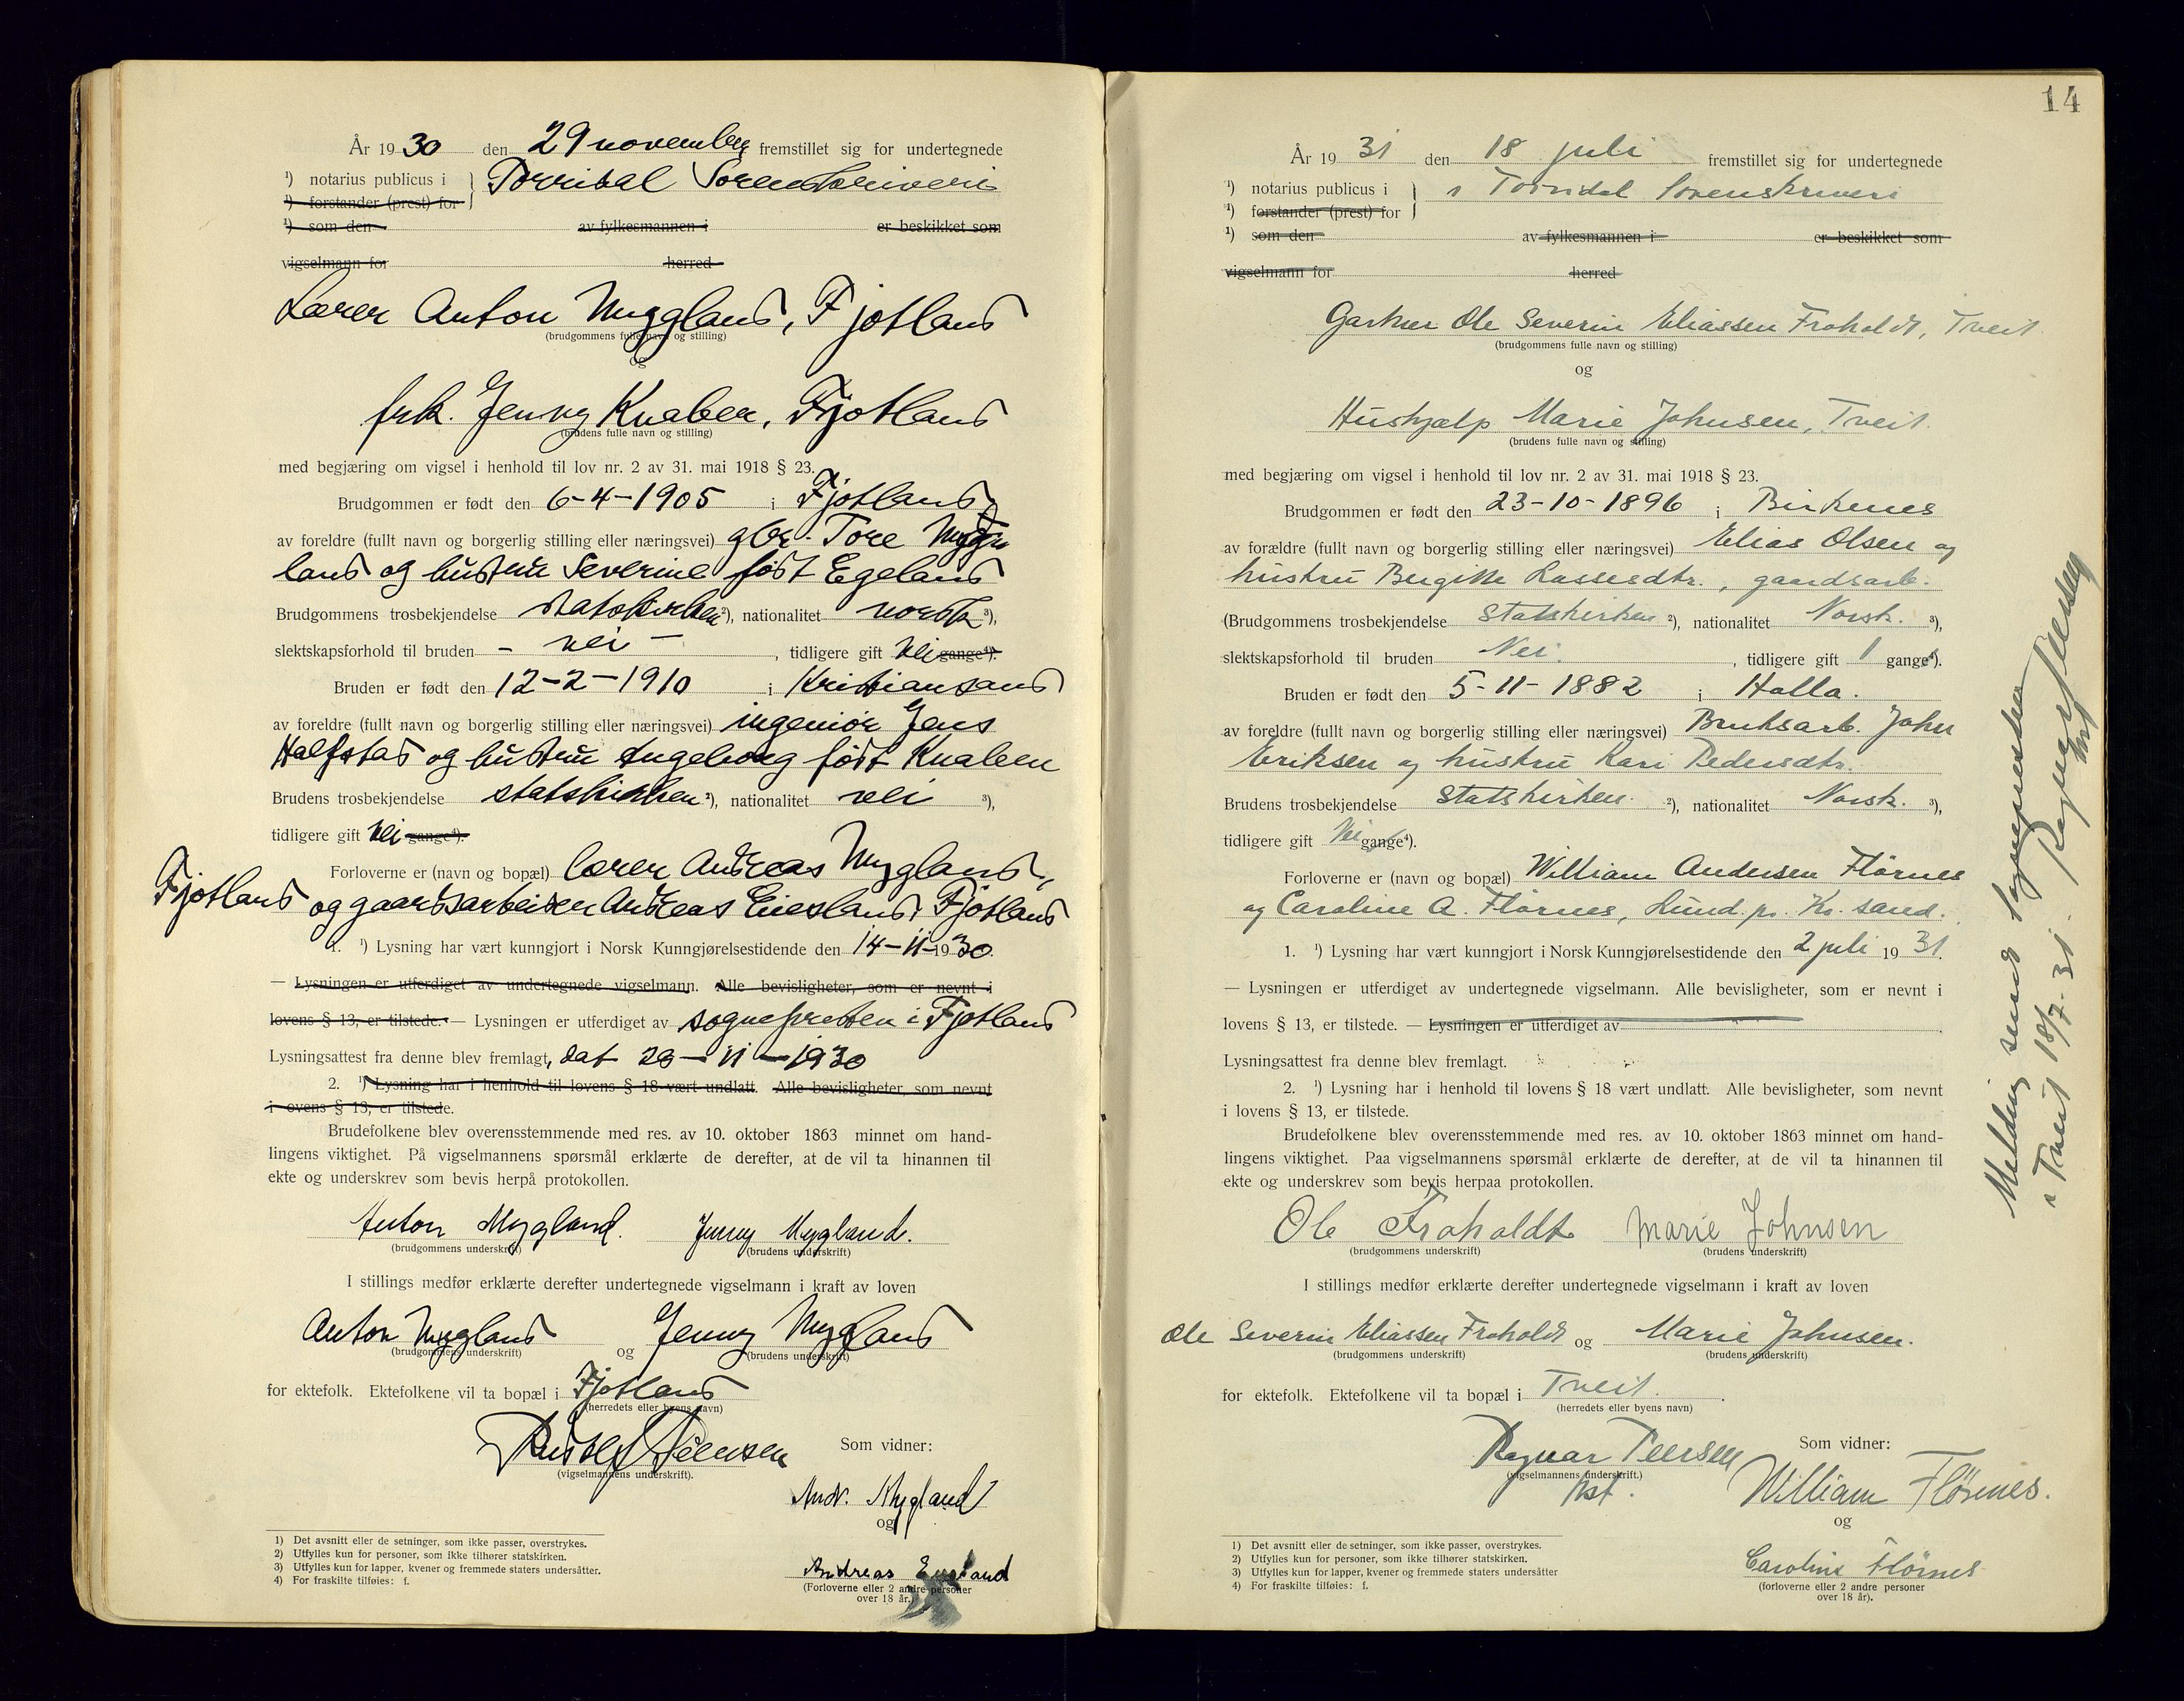 År 1930 den 29 november fremstillet sig for undertegnede
¹) notarius publicus i } Torridal Sorenskriveri
¹) forstander (prest) for
¹) som den av fylkesmannen i er beskikket som
vigselmann for herred
Lærer Anton Mygland, Fjotland
(brudgommens fulle navn og stilling)
og
frk. Jenny Knaben, Fjotland
(brudens fulle navn og stilling)
med begjæring om vigsel i henhold til lov nr. 2 av 31. mai 1918 § 23.
Brudgommen er født den 6-4-1905 i Fjotland
av foreldre (fullt navn og borgerlig stilling eller næringsvei) gbr. Tore Myg
land og hustru Severine født Egeland
Brudgommens trosbekjendelse statskirken ²), nationalitet norsk ³),
slektskapsforhold til bruden - nei - , tidligere gift nei gange⁴).
Bruden er født den 12-2-1910 i Kristiansand
av foreldre (fullt navn og borgerlig stilling eller næringsvei) ingeniør Jens
Halfstad og hustru Ingeborg født Knaben
Brudens trosbekjendelse statskirken ²), nationalitet nei ³),
tidligere gift nei gange⁴).
Forloverne er (navn og bopæl) lærer Andreas Mygland,
Fjotland og gaardsarbeider Andreas Eiesland, Fjotland
1. ¹) Lysning har vært kunngjort i Norsk Kunngjørelsestidende den 14-11-1930.
— Lysningen er utferdiget av undertegnede vigselmann. Alle bevisligheter, som er nevnt i
lovens § 13, er tilstede. — Lysningen er utferdiget av sognepresten i Fjotland
Lysningsattest fra denne blev fremlagt, dat 28-11-1930
2. ¹) Lysning har i henhold til lovens § 18 vært undlatt. Alle bevisligheter, som nevnt
i lovens § 13, er tilstede.
Brudefolkene blev overensstemmende med res. av 10. oktober 1863 minnet om hand-
lingens viktighet. På vigselmannens spørsmål erklærte de derefter, at de vil ta hinannen til
ekte og underskrev som bevis herpå protokollen.
Anton Mygland. Jenny Mygland.
(brudgommens underskrift) (brudens underskrift)
I stillings medfør erklærte derefter undertegnede vigselmann i kraft av loven
Anton Mygland og Jenny Mygland
(brudgommens underskrift) (brudens underskrift)
for ektefolk. Ektefolkene vil ta bopæl i Fjotland
(herredets eller byens navn)
(vigselmannens underskrift).
Som vidner:
Andr. Mygland
og
Andreas Eiesland
(Forloverne eller 2 andre personer
over 18 år.)
1) Det avsnitt eller de setninger, som ikke passer, overstrykes.
2) Utfylles kun for personer, som ikke tilhører statskirken.
3) Utfylles kun for lapper, kvener og fremmede staters undersåtter.
4) For fraskilte tilføies: f.
14
År 1931 den 18 juli fremstillet sig for undertegnede
¹) notarius publicus i } i Torridal Sorenskriveri
¹) forstander (prest) for
¹) som den av fylkesmannen i er beskikket som
vigselmann for herred
Gartner Ole Severin Eliassen Froholdt, Tveit
(brudgommens fulle navn og stilling)
og
Hushjælp Marie Johnsen, Tveit.
(brudens fulle navn og stilling)
med begjæring om vigsel i henhold til lov nr. 2 av 31. mai 1918 § 23.
Brudgommen er født den 23-10-1896 i Birkenes
av forældre (fullt navn og borgerlig stilling eller næringsvei) Elias Olsen og
hustru Bergitte Lassesdtr., gaardsarb.
(Brudgommens trosbekjendelse Statskirken ²), nationalitet Norsk. ³),
slektskapsforhold til bruden Nei. , tidligere gift 1 gange⁴).
Bruden er født den 5-11-1882 i Holla.
av foreldre (fullt navn og borgerlig stilling eller næringsvei) Bruksarb. John
Eriksen og hustru Kari Pedersdtr.
Brudens trosbekjendelse Statskirken. ²), nationalitet Norsk. ³),
tidligere gift Nei gange⁴).
Forloverne er (navn og bopæl) William Andersen Flørnes
og Caroline A. Flørnes, Lund pr. Kr. sand.
1. ¹) Lysning har vært kunngjort i Norsk Kunngjørelsestidende den 2 juli 1931.
— Lysningen er utferdiget av undertegnede vigselmann. Alle bevisligheter, som er nevnt i
lovens § 13, er tilstede. — Lysningen er utferdiget av
Lysningsattest fra denne blev fremlagt.
2. ¹) Lysning har i henhold til lovens § 18 vært undlatt. Alle bevisligheter, som nevnt
i lovens § 13, er tilstede.
Brudefolkene blev overensstemmende med res. av 10. oktober 1863 minnet om hand-
lingens viktighet. Paa vigselmannens spørsmål erklærte de derefter, at de vil ta hinannen til
ekte og underskrev som bevis herpaa protokollen.
Ole Froholdt Marie Johnsen
(brudgommens underskrift) (brudens underskrift)
I stillings medfør erklærte derefter undertegnede vigselmann i kraft av loven
Ole Severin Eliassen Froholdt og Marie Johnsen.
(brudgommens underskrift) (brudens underskrift)
for ektefolk. Ektefolkene vil ta bopæl i Tveit.
(herredets eller byens navn)
Ragnar Teersen
(vigselmannens underskrift.)
kst.
Som vidner:
William Flörnes.
og
Caroline Flörnes
(forloverne eller 2 andre personer
over 18 år).
1) Det avsnitt eller de setninger, som ikke passer, overstrykes.
2) Utfylles kun for personer, som ikke tilhører statskirken.
3) Utfylles kun for lapper, kvener og fremmede staters undersåtter
4) For fraskilte tilføies: f.
Melding sendt sognepresten
i Tveit 18/7-31. Ragnar Teersen
kst